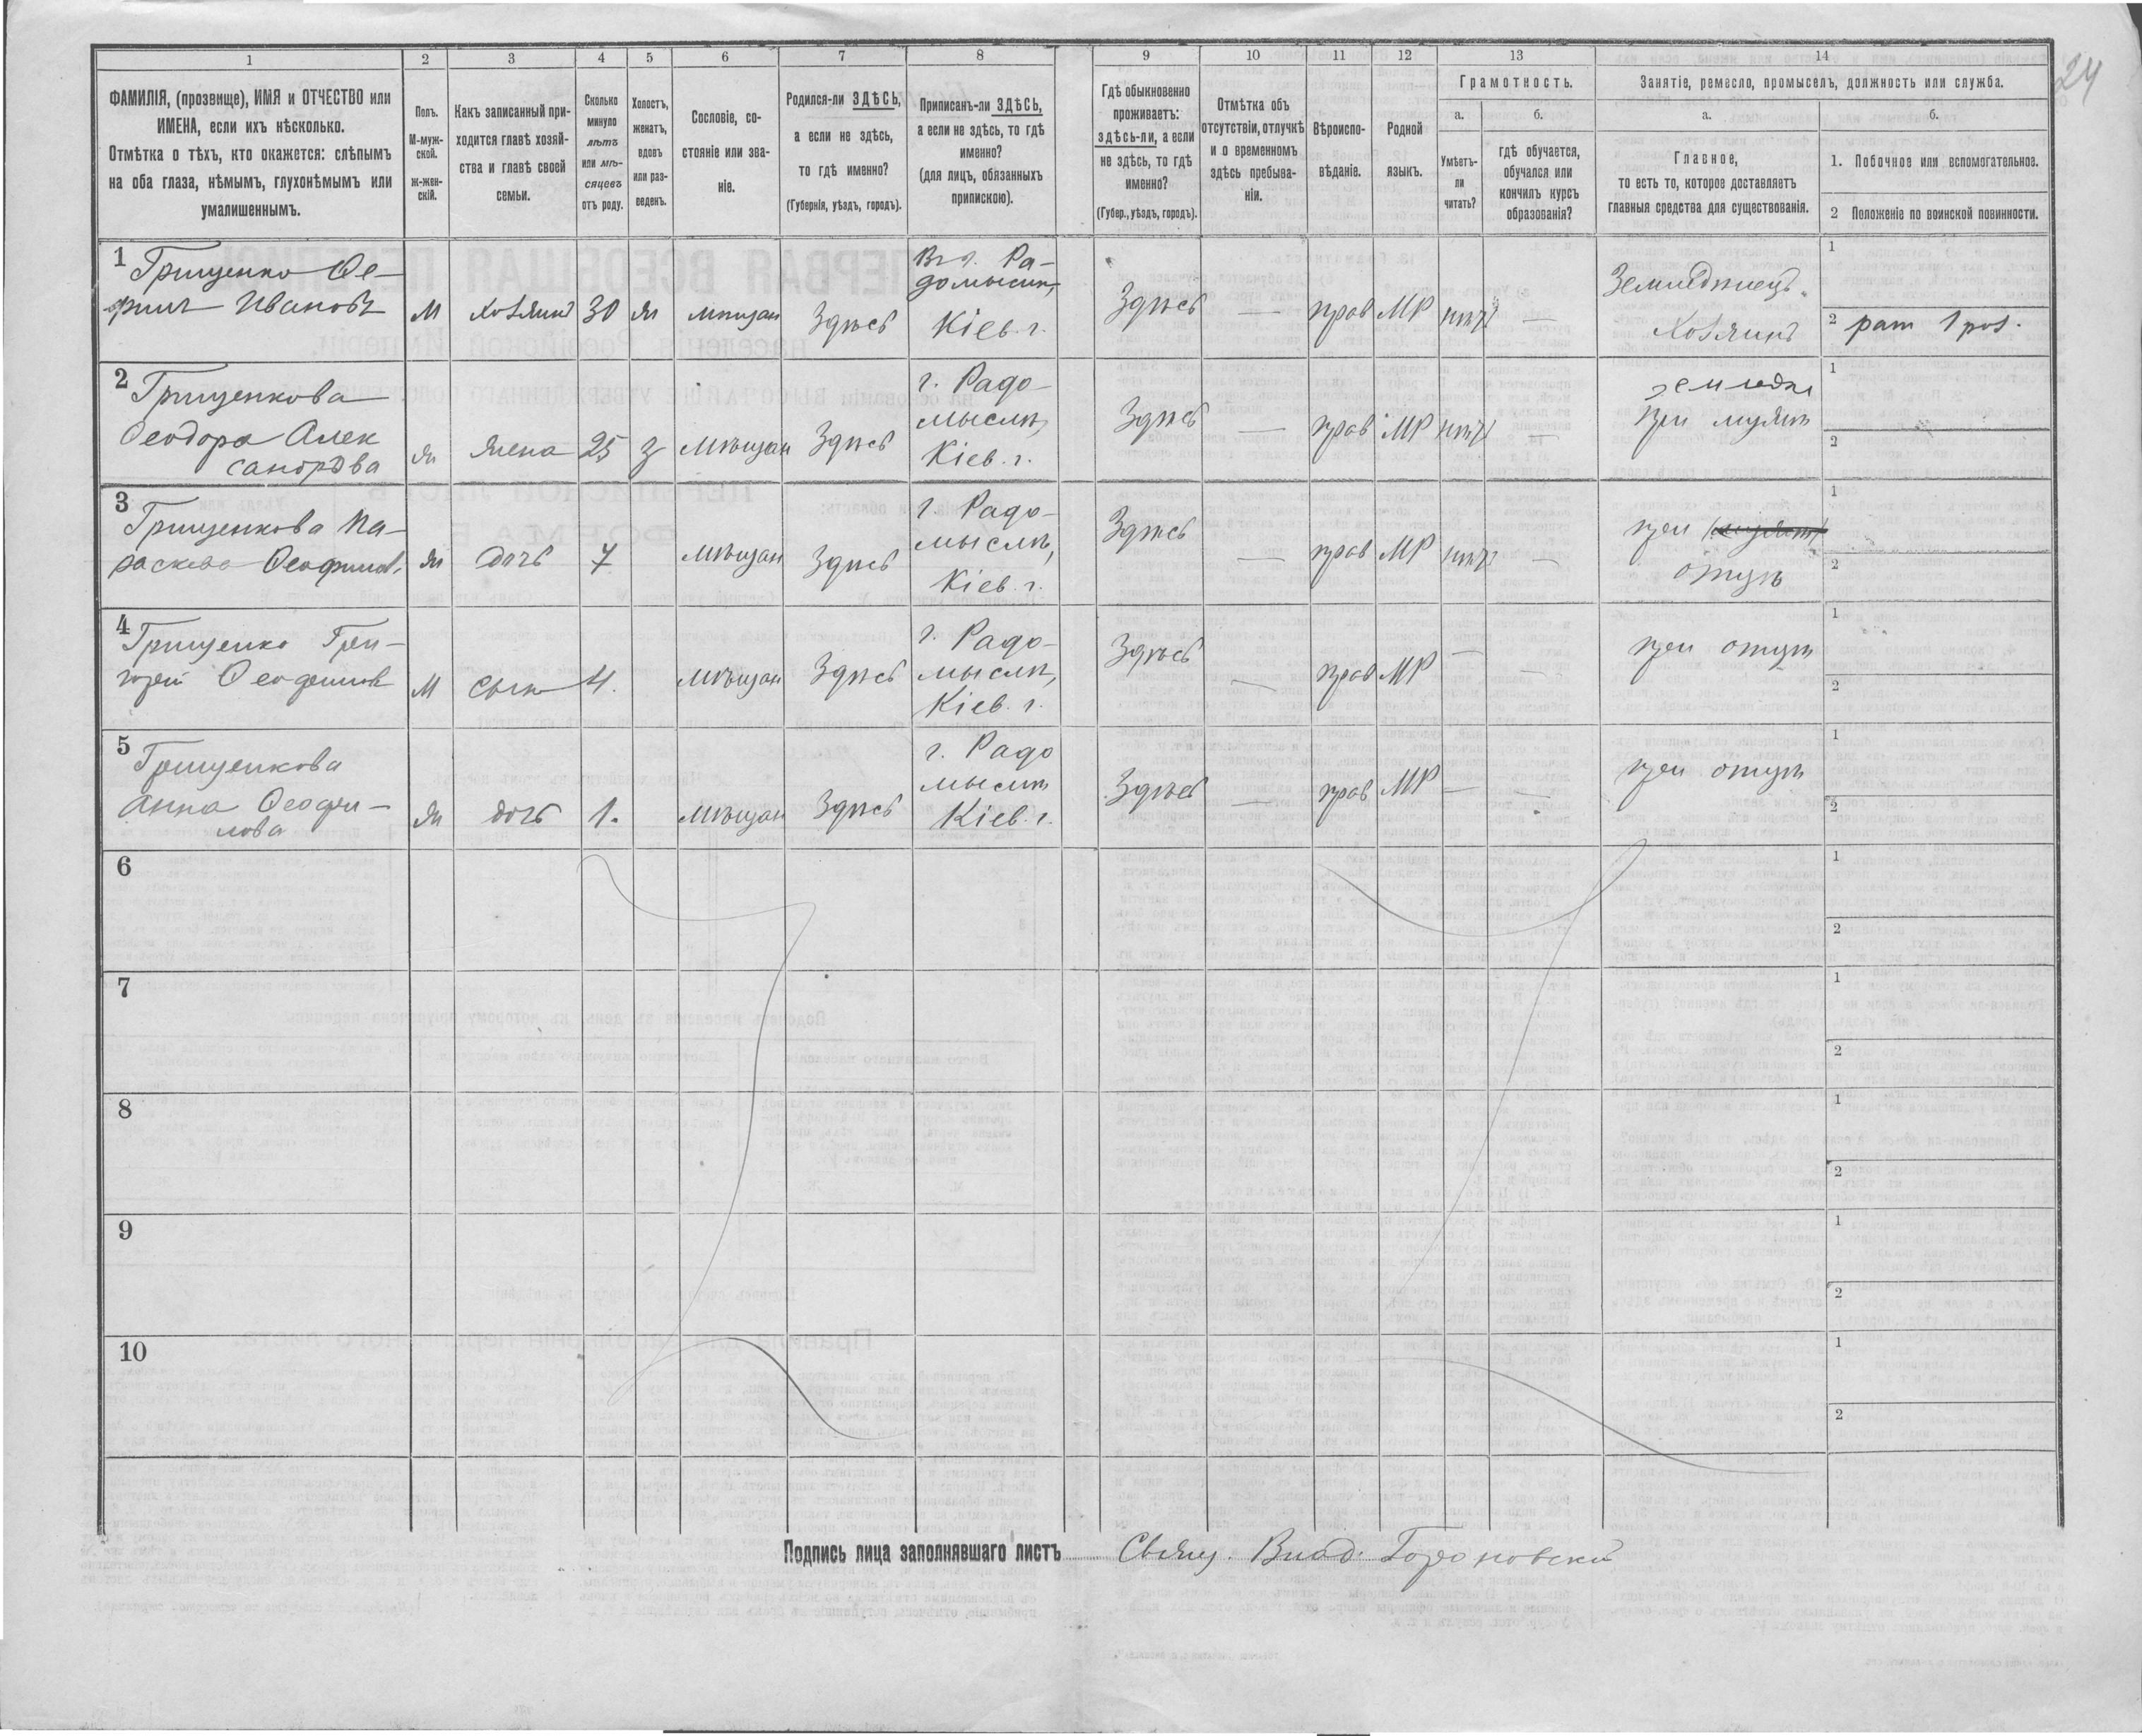 24
1 2 3 4 5 6 7 8 9 10 11 12 13 14
ФАМИЛІЯ, (прозвище), ИМЯ и ОТЧЕСТВО или
ИМЕНА, если ихъ нѣсколько.
Отмѣтка о тѣхъ, кто окажется: слѣпымъ
на оба глаза, нѣмымъ, глухонѣмымъ или
умалишеннымъ.
Полъ.
М-муж-
ской.
Ж-жен-
скій.
Какъ записанный при-
ходится главѣ хозяй-
ства и главѣ своей
семьи.
Сколько
минуло
лѣтъ
или мѣ-
сяцевъ
отъ роду.
Холостъ,
женатъ,
вдовъ
или раз-
веденъ.
Сословіе, со-
стояніе или зва-
ніе.
Родился-ли ЗДѢСЬ,
а если не здѣсь,
то гдѣ именно?
(Губернія, уѣздъ, городъ).
Приписанъ-ли ЗДѢСЬ,
а если не здѣсь, то гдѣ
именно?
(для лицъ, обязанныхъ
припискою).
Гдѣ обыкновенно
проживаетъ:
здѣсь-ли, а если
не здѣсь, то гдѣ
именно?
(Губер., уѣздъ, городъ).
Отмѣтка объ
отсутствіи, отлучкѣ
и о временномъ
здѣсь пребыва-
ніи.
Вѣроиспо-
вѣданіе.
Родной
языкъ.
Грамотность.
а.
Умѣетъ-
ли
читать?
б.
гдѣ обучается,
обучался или
кончилъ курсъ
образованія?
Занятіе, ремесло, промыселъ, должность или служба.
а.
Главное,
то есть то, которое доставляетъ
главныя средства для существованія.
б.
1. Побочное или вспомогательное.
2 Положеніе по воинской повинности.
1 Грищенко Ѳе-
филъ Ивановъ
М
хозяинъ
30
ж
мѣщан
Здѣсь
Радомыслѣ,
Кіев. г.
Здѣсь
—
прав
МР
нѣтъ
—
Земледѣлецъ.
Хозяинъ
1
2 рат 1 раз.
2 Грищенкова
Ѳеодора Алек
сандрова
ж
жена
25
з
мѣщан
Здѣсь
г. Радо-
мыслѣ,
Кіев. г.
Здѣсь
—
прав
МР
нѣтъ
—
земледѣл
при мужѣ
1
2
3 Грищенкова Па-
раскева Ѳеофилов.
ж
дочь
7
мѣщан
Здѣсь
г. Радо-
мыслѣ,
Кіев. г.
Здѣсь
—
прав
МР
нѣтъ
—
при
отцѣ
1
2
4 Грищенко Гри-
горій Ѳеофилов
М
сынъ
4.
мѣщан
Здѣсь
г. Радо-
мыслѣ,
Кіев. г.
Здѣсь
—
прав
МР
—
—
при отцѣ
1
2
5 Грищенкова
Анна Ѳеофи-
лова
ж
дочь
1.
мѣщан
Здѣсь
г. Радо
мыслѣ
Кіев. г.
Здѣсь
—
прав
МР
—
—
при отцѣ
1
2
6
1
2
7
1
2
8
1
2
9
1
2
10
1
2
Подпись лица заполнявшаго листъ Свящ. Влад.